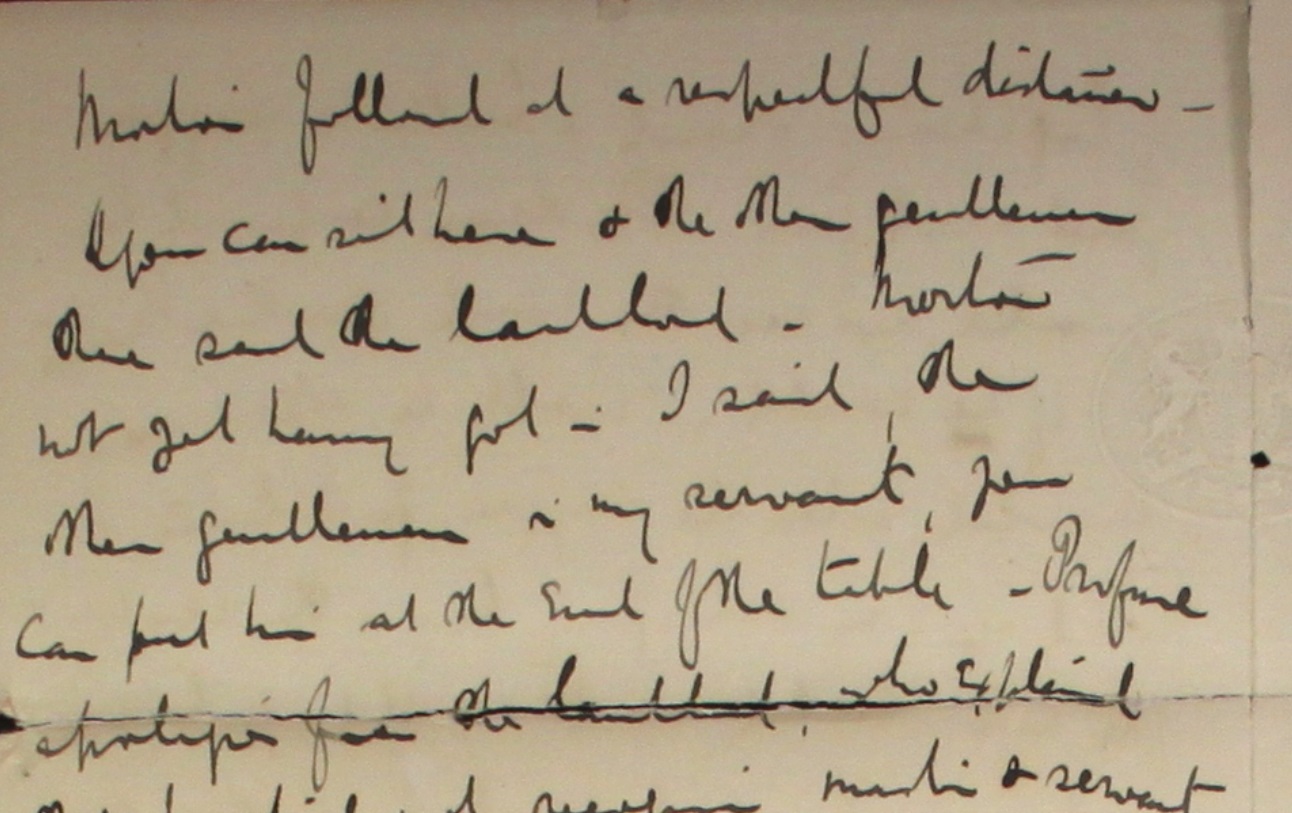 Morton followed at a respectful distance -
You can sit here & the other gentleman
there said the landlord - Morton
not yet having got - I said, the
other gentleman is my servant, you
can put him at the End of the table - Profuse
apologies from the landlord, who Explained
master & servant